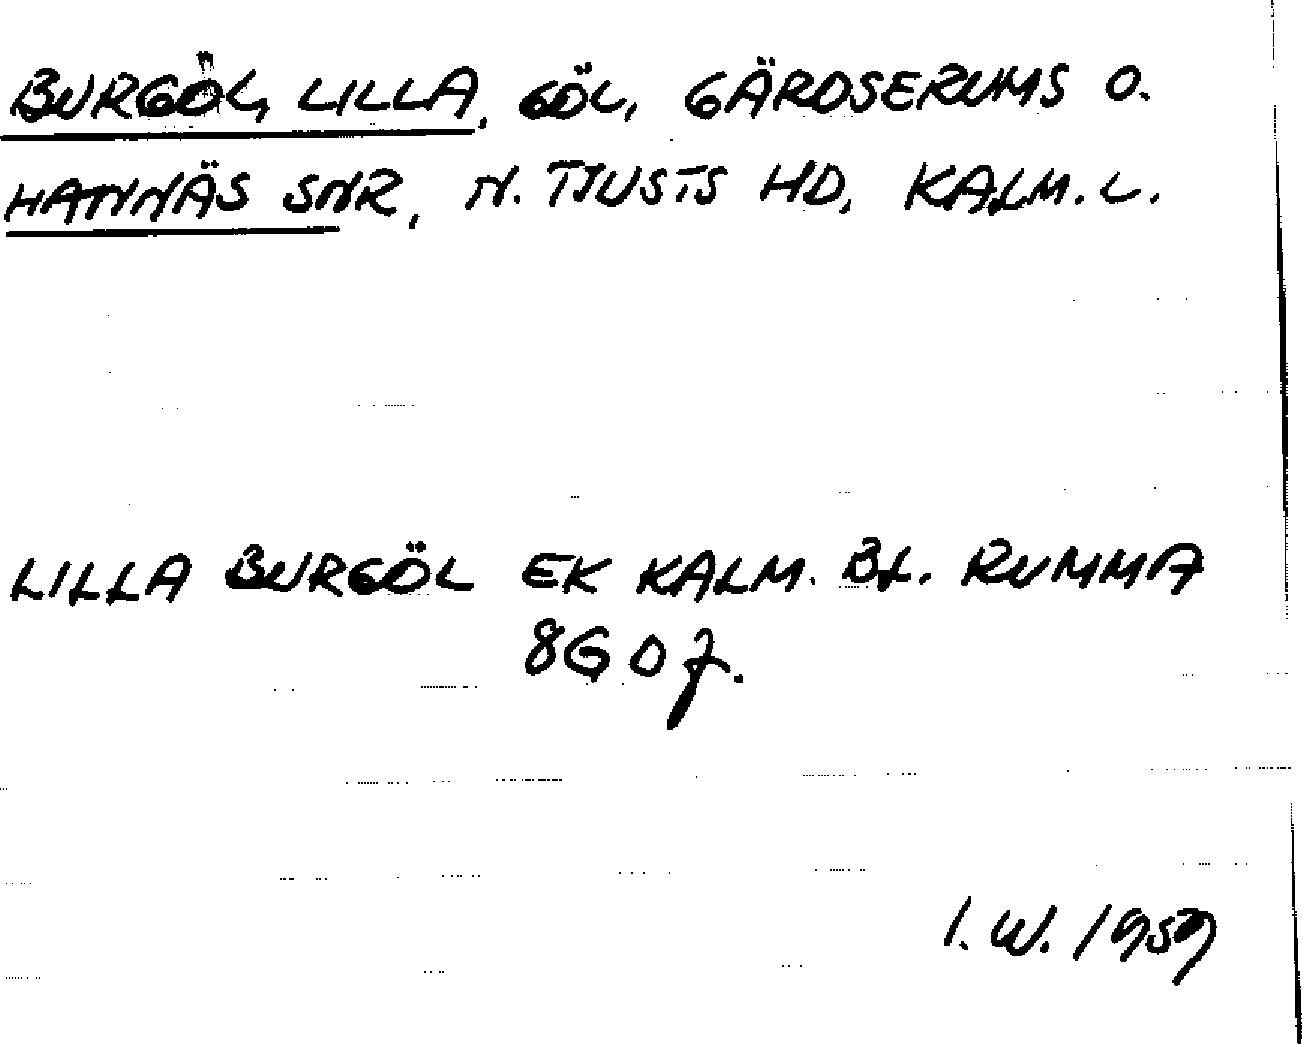 BURGÖL, LILLA, GÖL, GÄRDSERUMS O.
HANNÄS SNR, N. TJUSTS HD, KALM. L.
LILLA BURGÖL EK KALM. BL. RUMMA
8G 0 f.
I. W. 1959